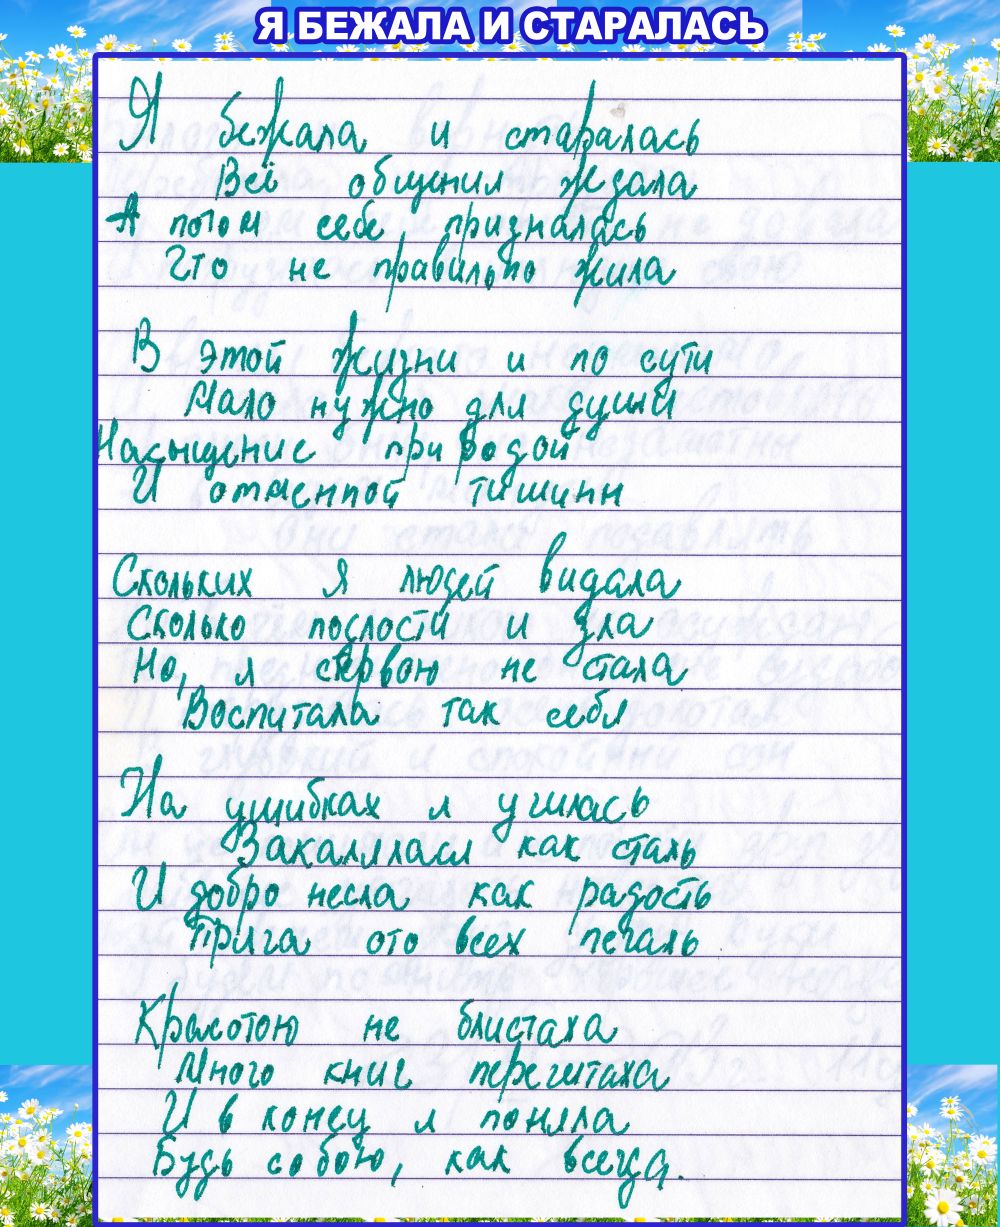 Я БЕЖАЛА И СТАРАЛАСЬ
Я бежала и старалась
Всё общения ждала
А потом себе призналась
Что не правильно жила
В этой жизни и по сути
Мало нужно для души
Насыщение природой
И отменной тишины
Скольких я людей видала
Сколько подлости и зла
Но, я стервою не стала
Воспитала так себя
На ушибках я училась
Закалялася как сталь
И добро несла как радость
Пряча ото всех печаль
Красотою не блистала
Много книг перечитала
И в конец я поняла
Будь собою, как всегда.